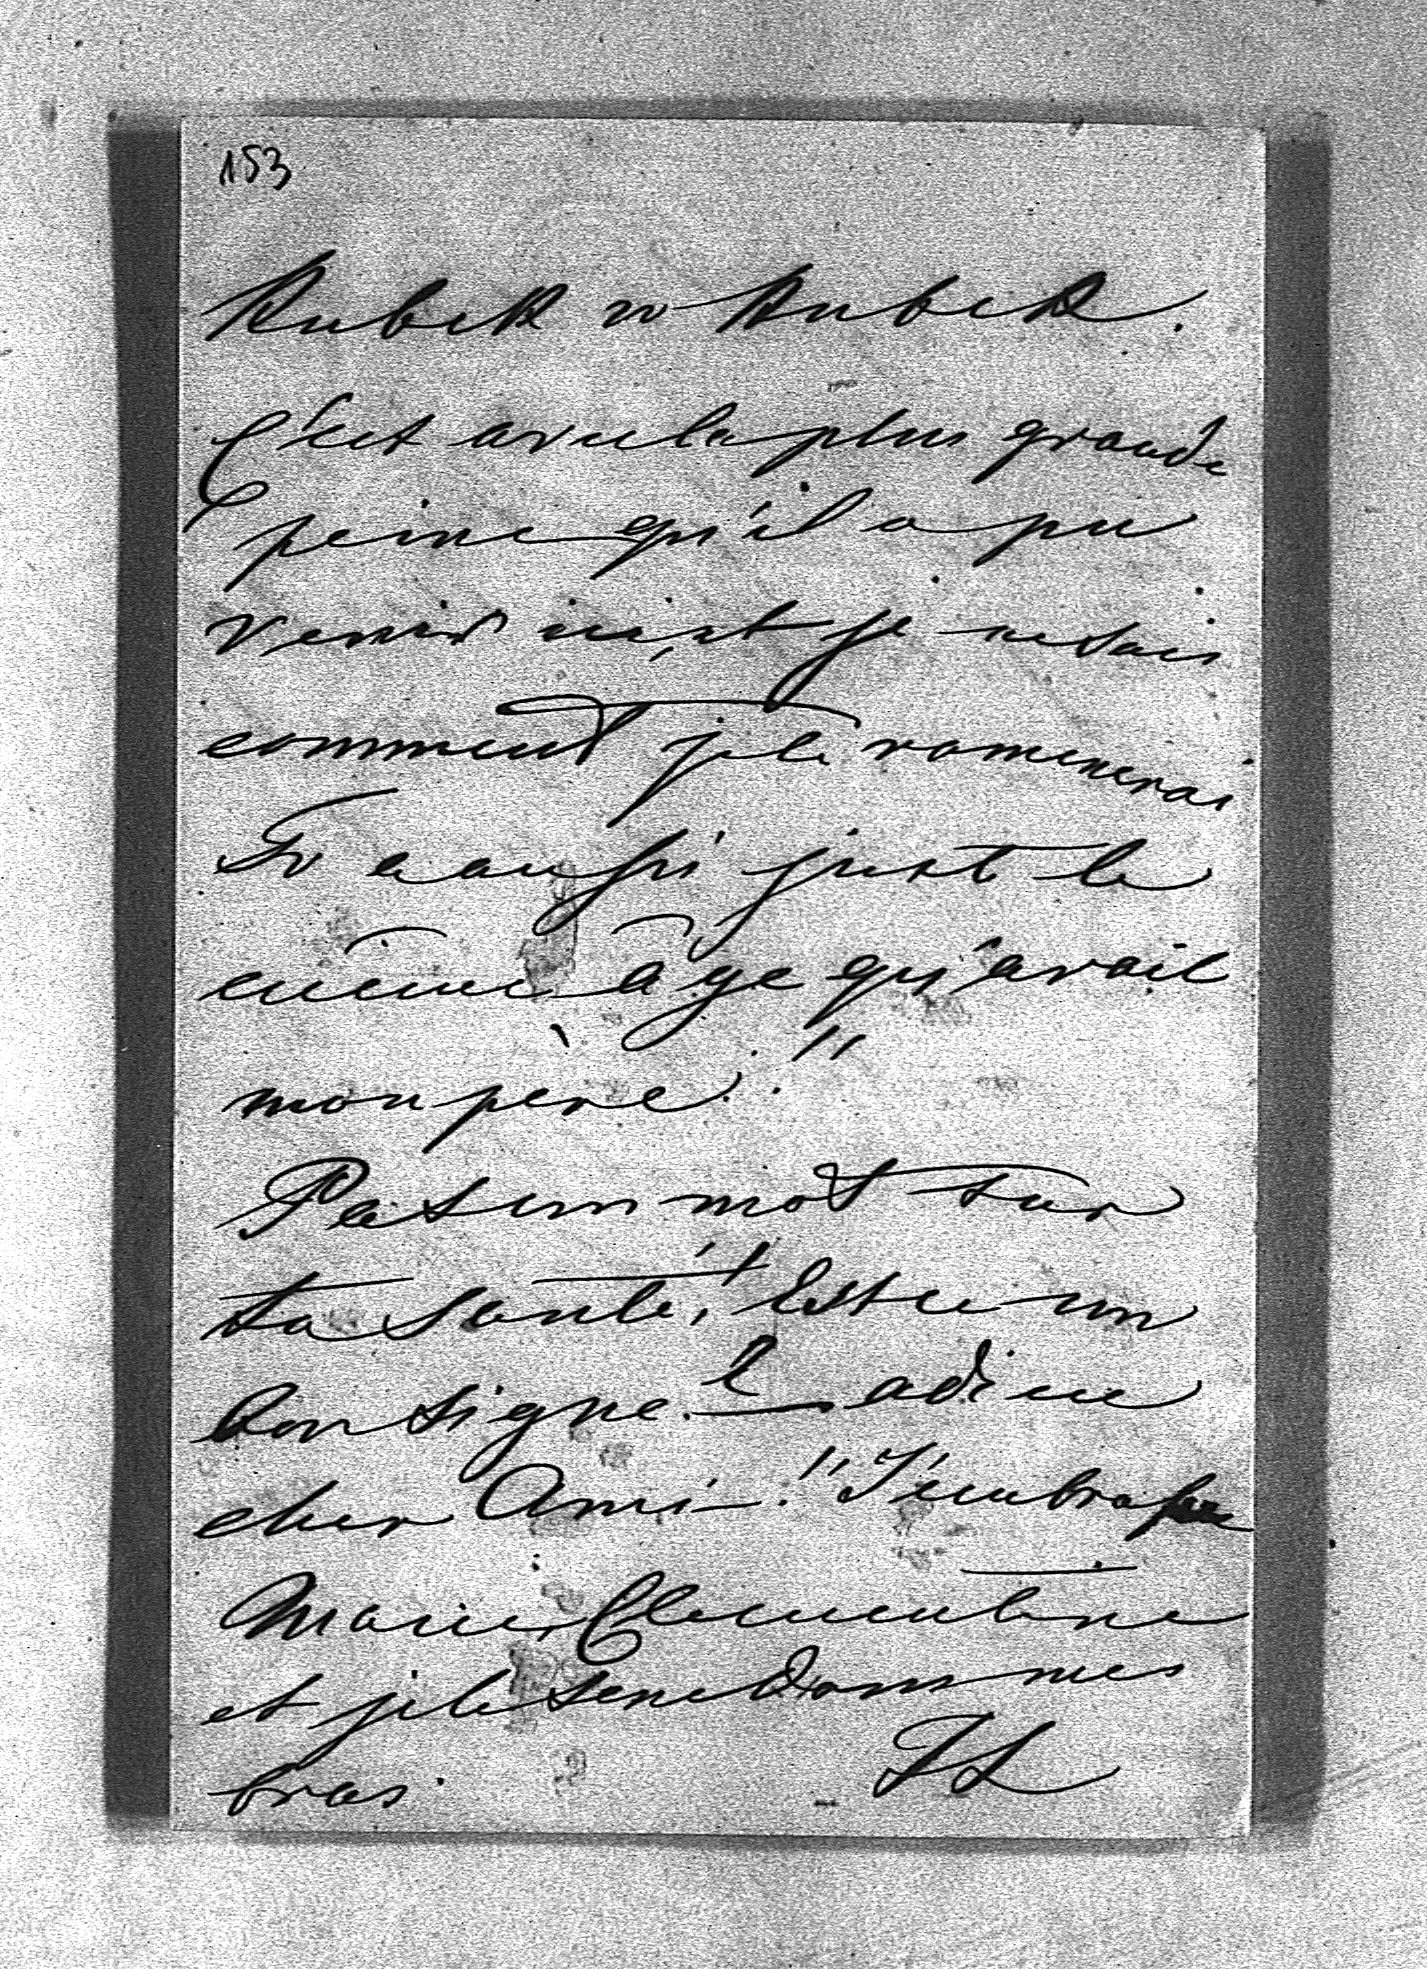 153
Kubek w Kubek.
C'est avec la plus grande
peine qu'il a pu
venir ici, et je ne sais
comment je le ramenerai
Il a aussi juste le
même âge qu'avait
mon père.!!
Pas un mot sur
ta santé, ! Est ce un
bon signe. ? adieu
cher Ami !! J'embrasse
Marie, Clementine
et je le serre dans mes
bras.